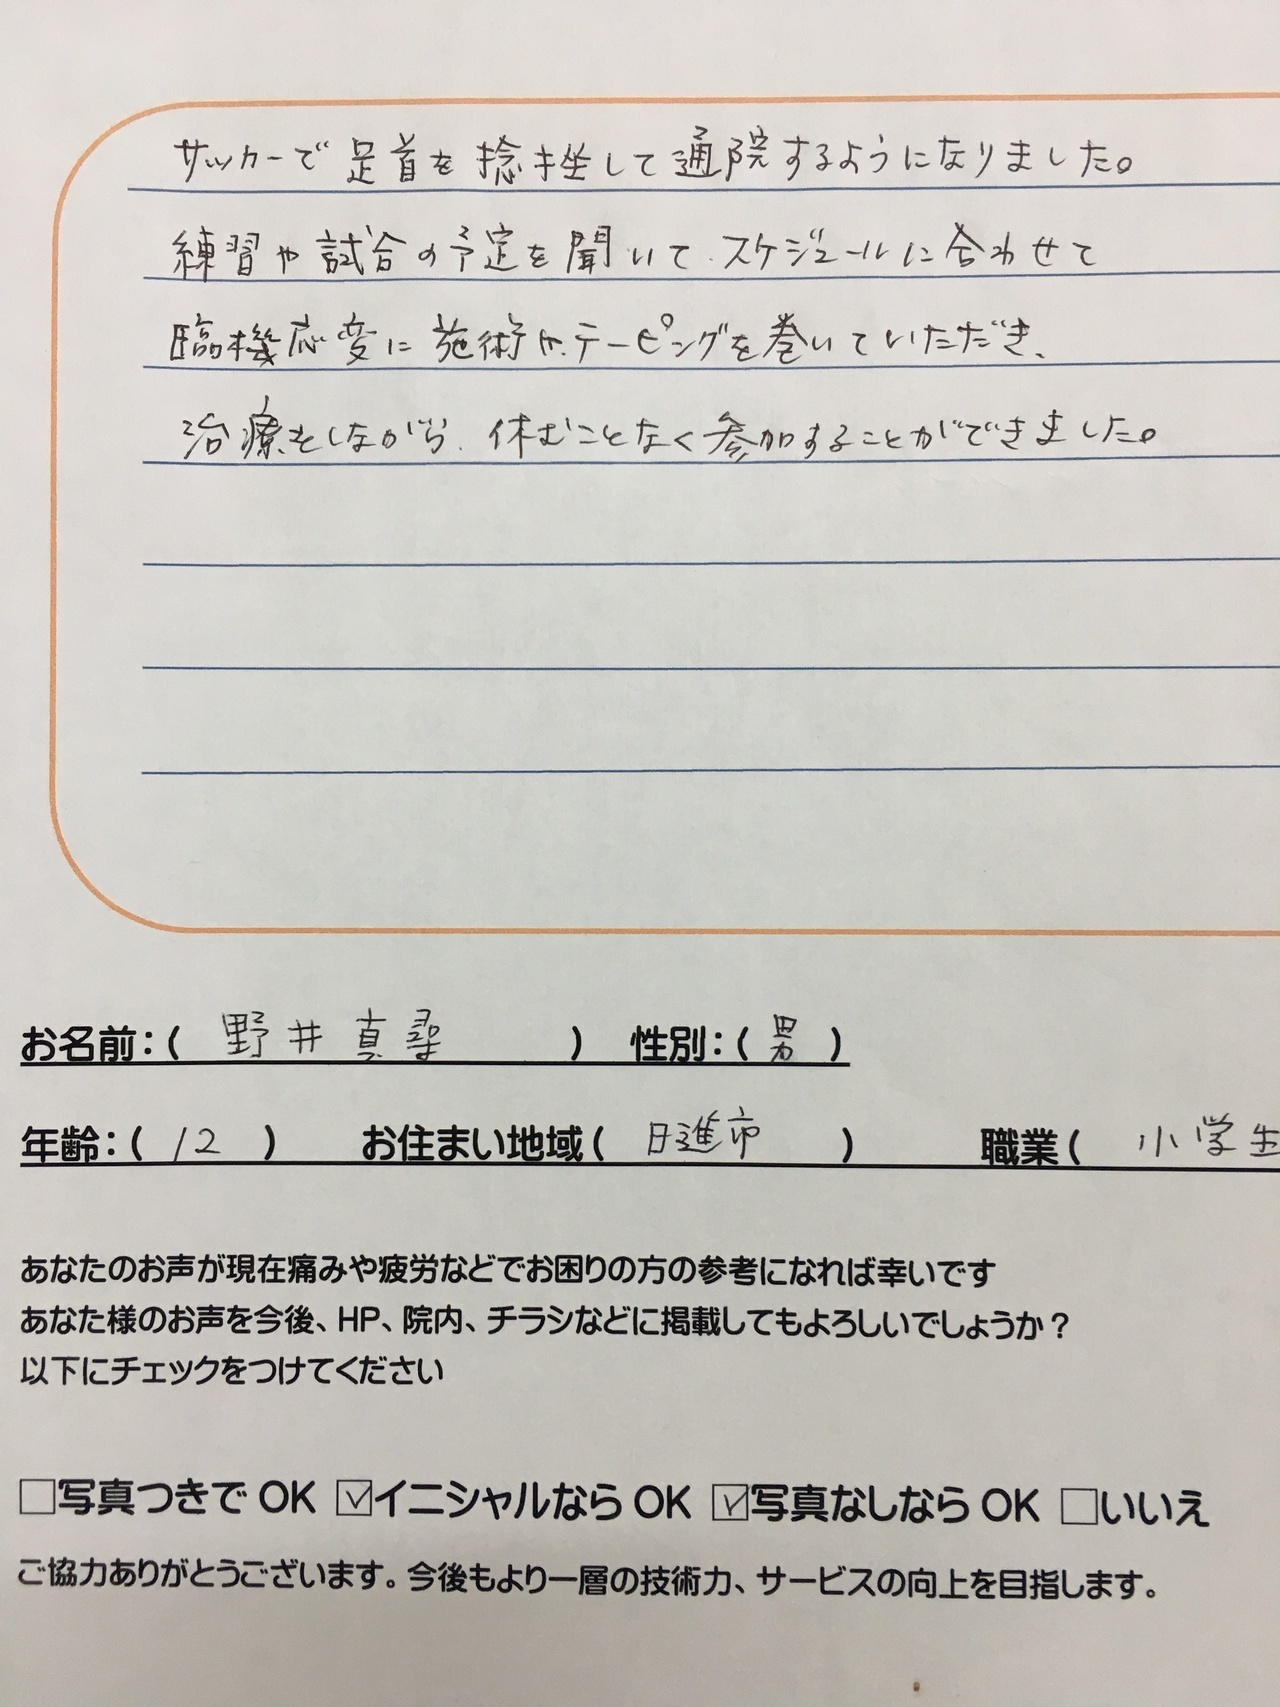 サッカーで足首を捻挫して通院するようになりました。
練習や試合の予定を聞いて、スケジュールに合わせて
臨機応変に施術や、テーピングを巻いていただき、
治療をしながら、休むことなく参加することができました。
お名前：( 野井真尋 ) 性別：( 男 )
年齢：( 12 ) お住まい地域( 日進市 ) 職業( 小学生
あなたのお声が現在痛みや疲労などでお困りの方の参考になれば幸いです
あなた様のお声を今後、HP、院内、チラシなどに掲載してもよろしいでしょうか？
以下にチェックをつけてください
□写真つきで OK ☑イニシャルなら OK ☑写真なしなら OK □いいえ
ご協力ありがとうございます。今後もより一層の技術力、サービスの向上を目指します。